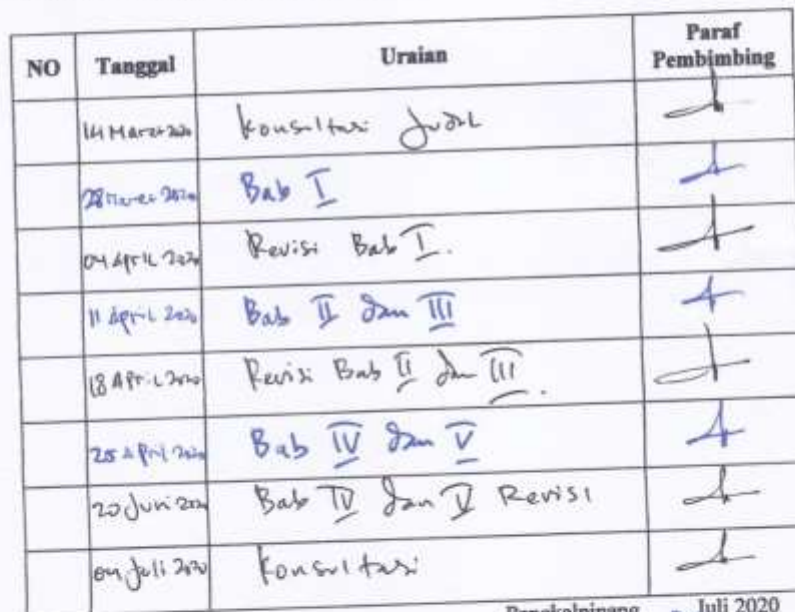 NO Tanggal Uraian Paraf Pembimbing
14 Maret 2020 Konsultasi Judul
28 Maret 2020 Bab I
04 April 2020 Revisi Bab I.
11 April 2020 Bab II dan III
18 April 2020 Revisi Bab II dan III.
25 April 2020 Bab IV dan V
20 Juni 2020 Bab IV dan V Revisi
04 Juli 2020 Konsultasi
Pangkalpinang Juli 2020